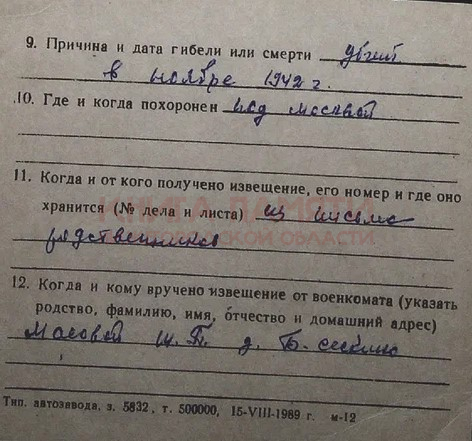 9. Причина и дата гибели или смерти убит
в ноябре 1942 г.
10. Где и когда похоронен под Москвой
11. Когда и от кого получено извещение, его номер и где оно
хранится (№ дела и листа) из письма
родственников
КНИГА ПАМЯТИ
ОБЛАСТИ
12. Когда и кому вручено извещение от военкомата (указать
родство, фамилию, имя, отчество и домашний адрес)
д.
Тип. автозавода, з. 5832, т. 500000, 15-VIII-1989 г. м-12